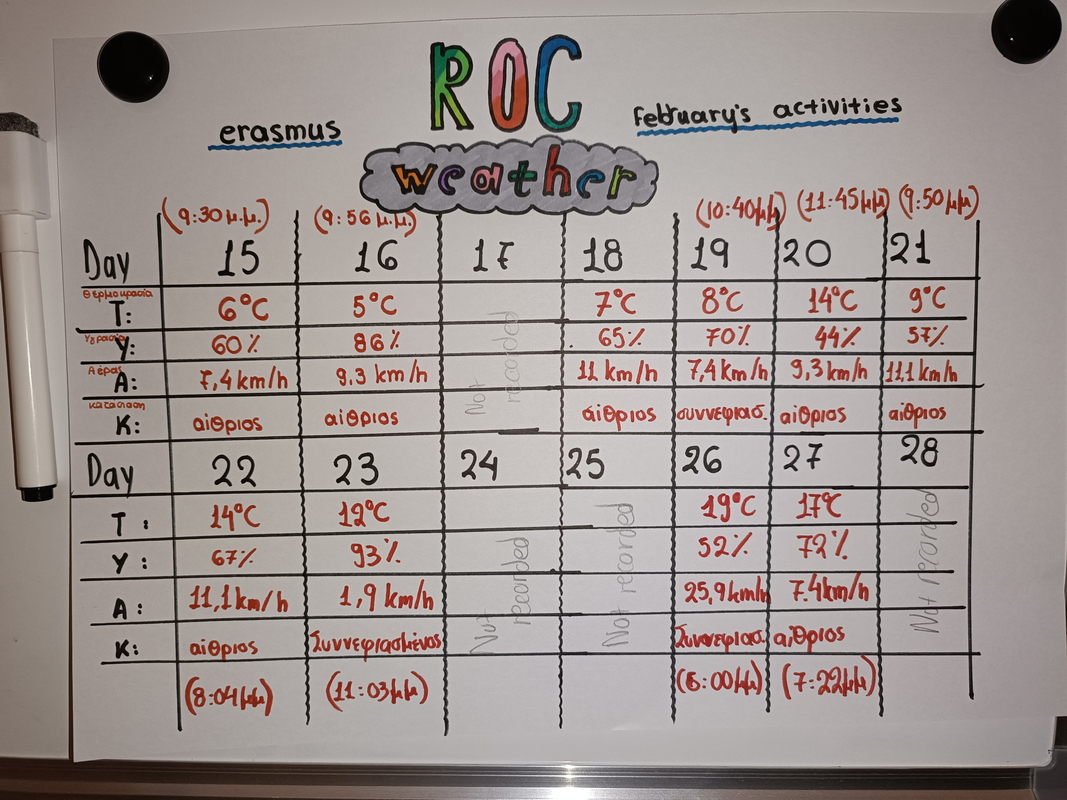 ROC
erasmus
february's activities
weather
(9:30 μ.μ.) (9:56 μ.μ.) (10:40μμ) (11:45μμ) (9:50μμ)
Day 15 16 17 18 19 20 21
Θερμοκρασία
T: 6°C 5°C 7°C 8°C 14°C 9°C
Υγρασία
Υ: 60% 86% 65% 70% 44% 57%
Αέρας
A: 7,4 km/h 9,3 km/h Not recorded 11 km/h 7,4km/h 9,3 km/h 11,1 km/h
κατάσταση
K: αίθριος αίθριος αίθριος συννεφιασ. αίθριος αίθριος
Day 22 23 24 25 26 27 28
T: 14°C 12°C 19°C 17°C
Y: 67% 93% 52% 72%
A: 11,1km/h 1,9 km/h Not recorded Not recorded 25,9km/h 7.4km/h Not recorded
K: αίθριος Συννεφιασμένος Συννεφιασ. αίθριος
(8:04μμ) (11:03μμ) (6:00μμ) (7:22μμ)